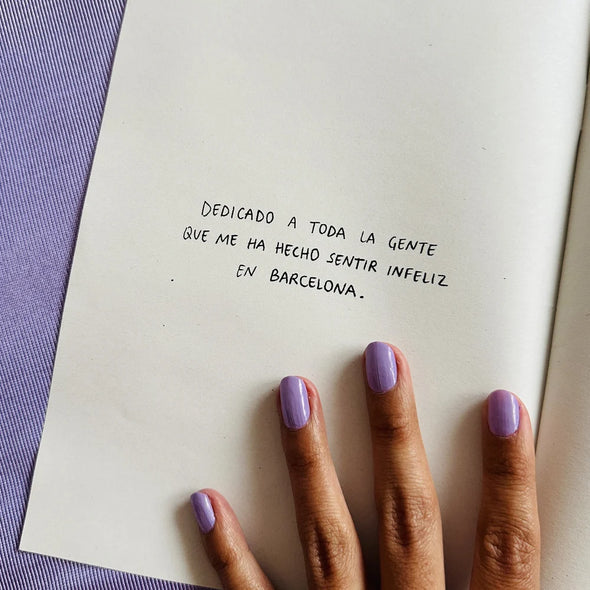 DEDICADO A TODA LA GENTE
QUE ME HA HECHO SENTIR INFELIZ
EN BARCELONA.